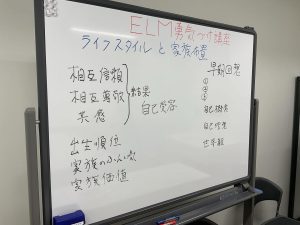 ELM勇気づけ講座
ライフスタイルと家族布置
相互信頼
相互尊敬
共感
結果
自己受容
出生順位
家族のふんい気
家族価値
早期回想
①
②
③
自己概念
自己理想
世界観